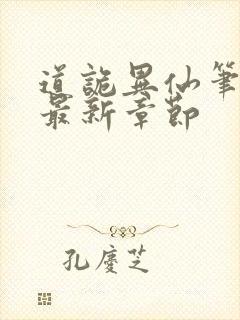 道詭異仙筆
最新章節
孔慶芝